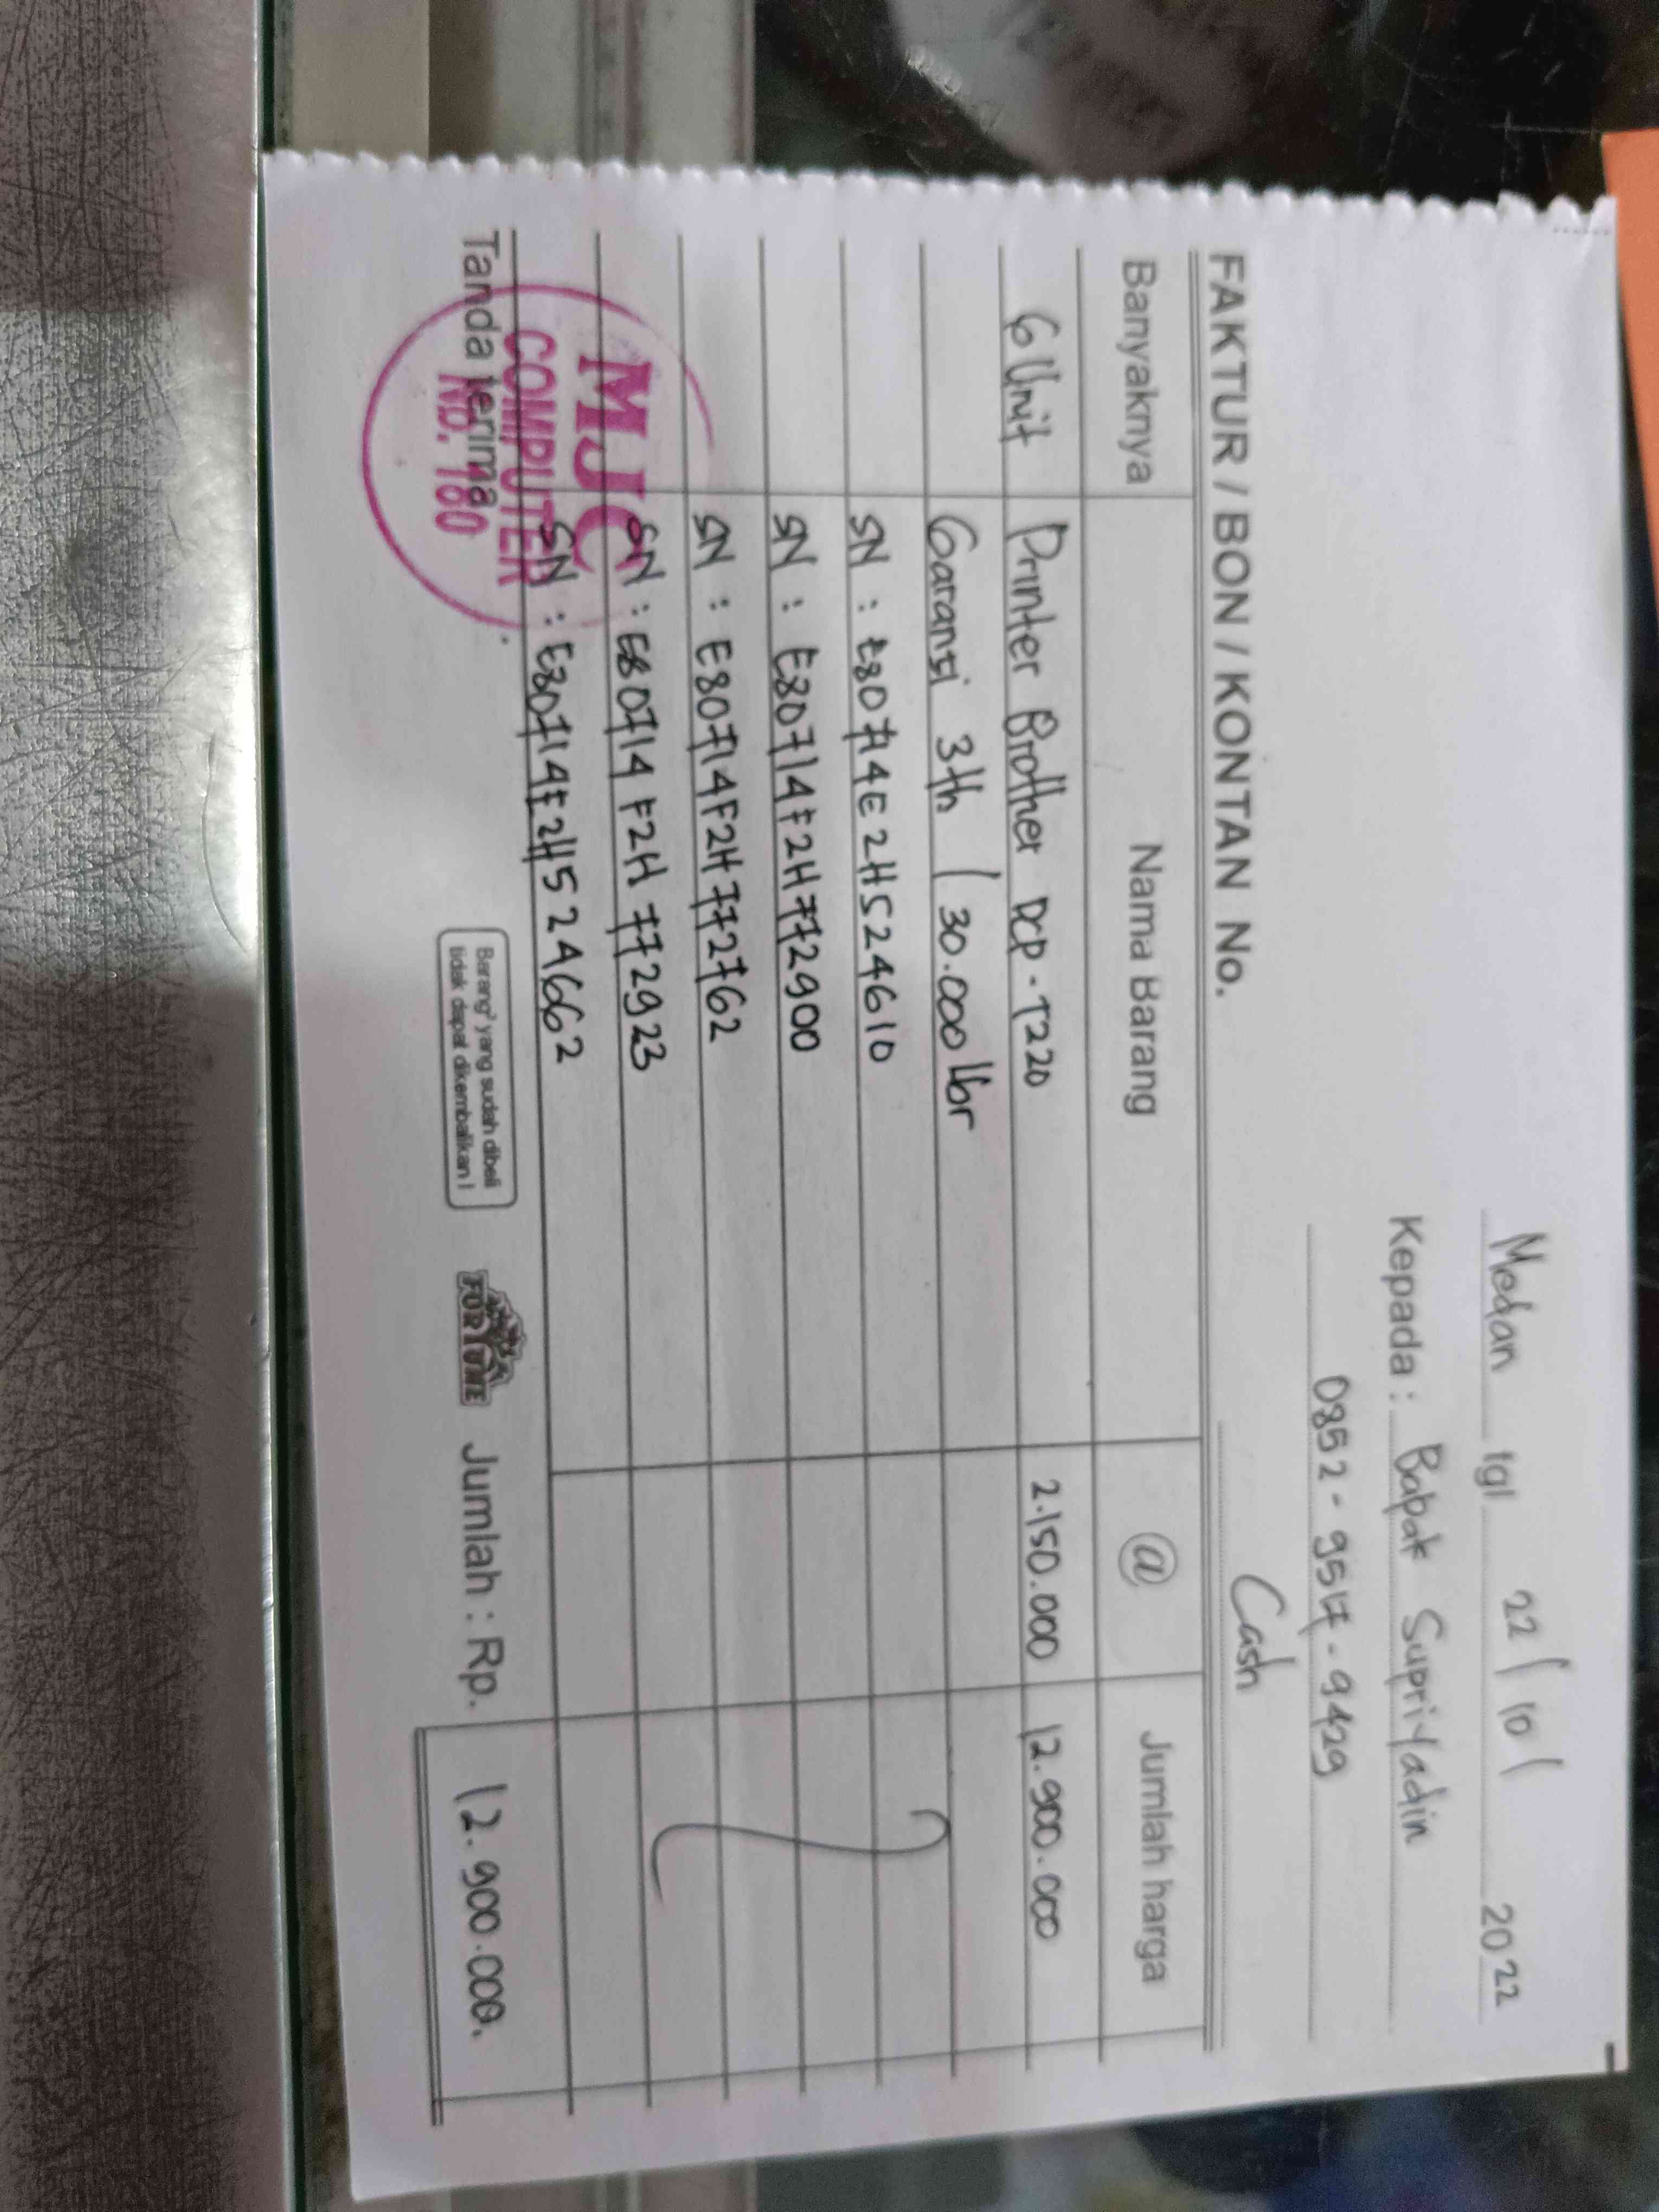 Medan tgl 22/10/ 2022
Kepada : Bapak Supriyadin
0852-9517-9429
Cash
FAKTUR / BON / KONTAN No.
Banyaknya Nama Barang @ Jumlah harga
6 Unit Printer Brother DCP-T220 2.150.000 12.900.000
Garansi 3th / 30.000 lbr
SN : E80714E2H524610
SN : E80714F2H772900
SN : E80714F2H772762
SN : E80714F2H772923
SN : E80714E2H524662
Tanda terima
MJC
COMPUTER
NO. 180
Barang² yang sudah dibeli
tidak dapat dikembalikan !
FORTUNE
Jumlah : Rp. 12.900.000.